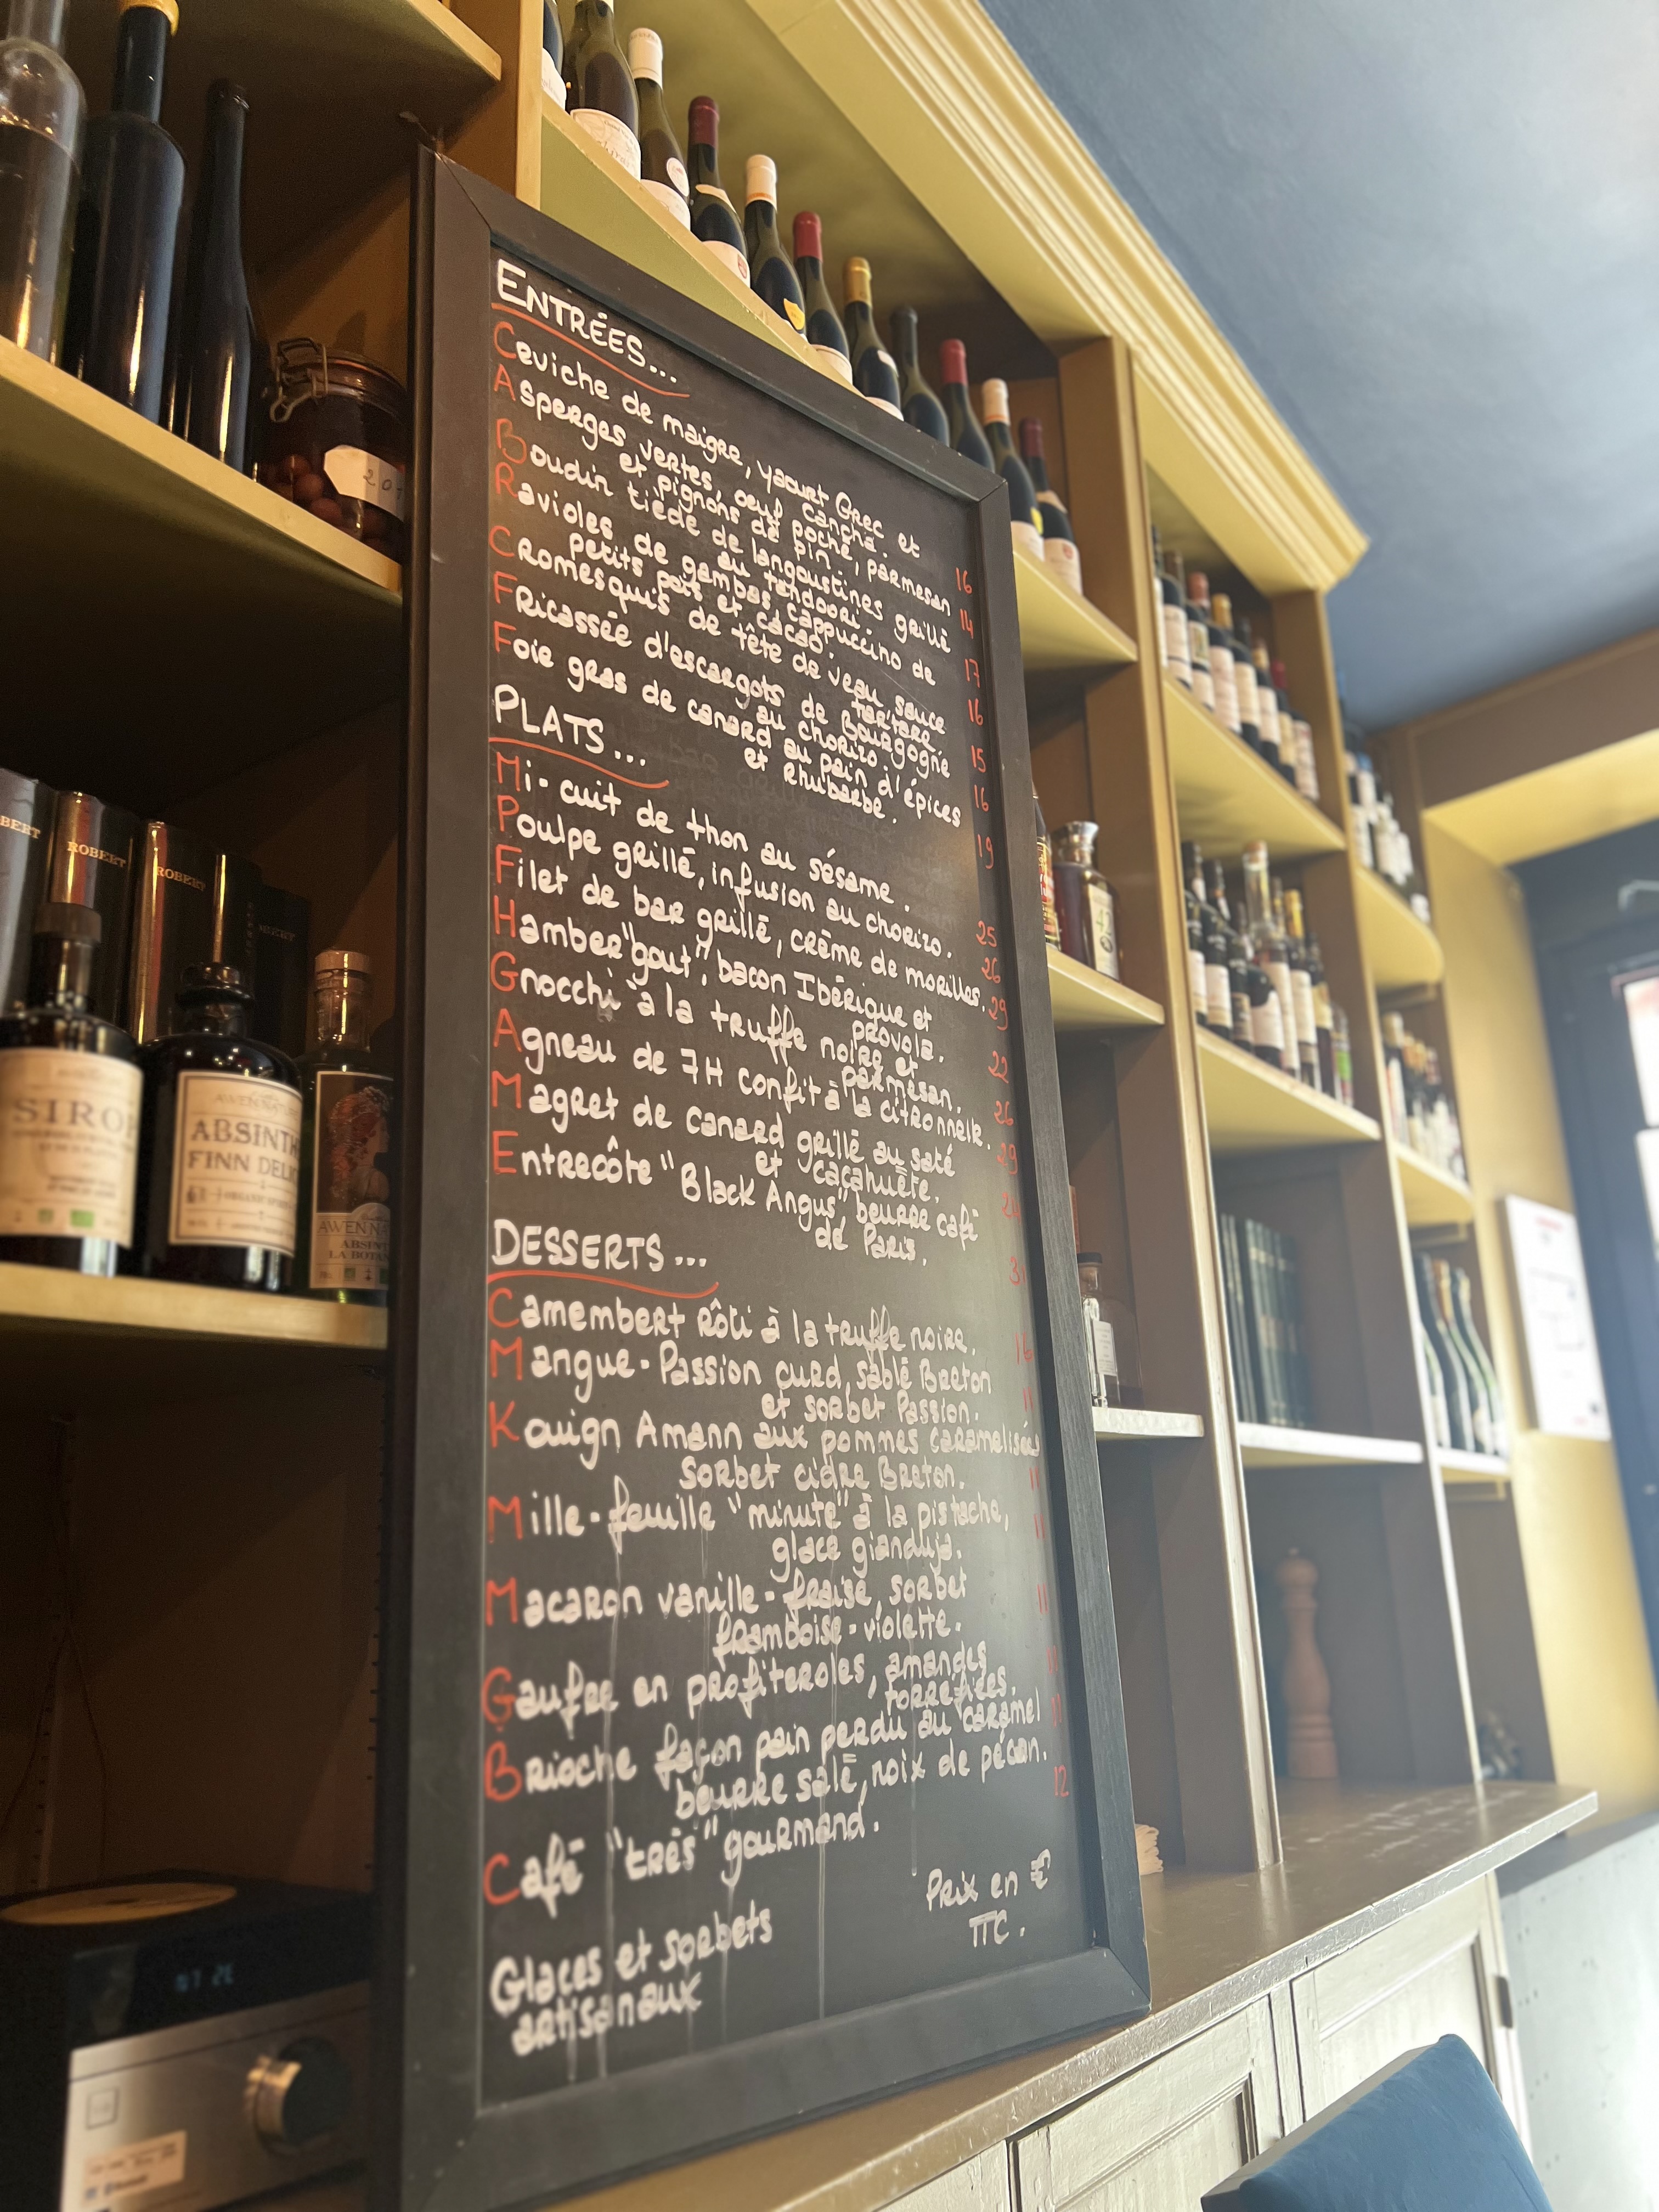 ENTRÉES...
Ceviche de maigre, yaourt Grec et
Cancha. 16
Asperges vertes, oeuf poché, parmesan
et pignons de pin. 14
Boudin tiède de langoustines grillé
au tandoori. 17
Ravioles de gambas, cappuccino de
petits pois et cacao. 16
Cromesquis de tête de veau sauce
tartare. 15
Fricassée d'escargots de Bourgogne
au chorizo. 16
Foie gras de canard au pain d'épices
et Rhubarbe. 19
PLATS...
Mi-cuit de thon au sésame. 25
Poulpe grillé, infusion au chorizo. 26
Filet de bar grillé, crème de morilles. 29
Hamber"gout", bacon Ibérique et
provola. 22
Gnocchi à la truffe noire et
parmesan. 26
Agneau de 7H confit à la citronnelle. 29
Magret de canard grillé au saté
et cacahuète. 24
Entrecôte "Black Angus" beurre café
de Paris.
DESSERTS...
Camembert rôti à la truffe noire.
Mangue-Passion curd, sablé Breton
et sorbet Passion. 11
Kouign Amann aux pommes caramelisées
sorbet cidre Breton. 11
Mille-feuille "minute" à la pistache,
glace gianduja. 11
Macaron vanille-fraise, sorbet
framboise-violette. 11
Gaufre en profiteroles, amandes
torrefiées.
Brioche façon pain perdu au caramel
beurre salé, noix de pécan. 11
Café "très" gourmand. 12
Prix en €
TTC.
Glaces et sorbets
artisanaux
ROBERT
ROBERT
SIROP
ABSINTH
FINN DELI
AWEN NA
ABSIN
LA BOTAN